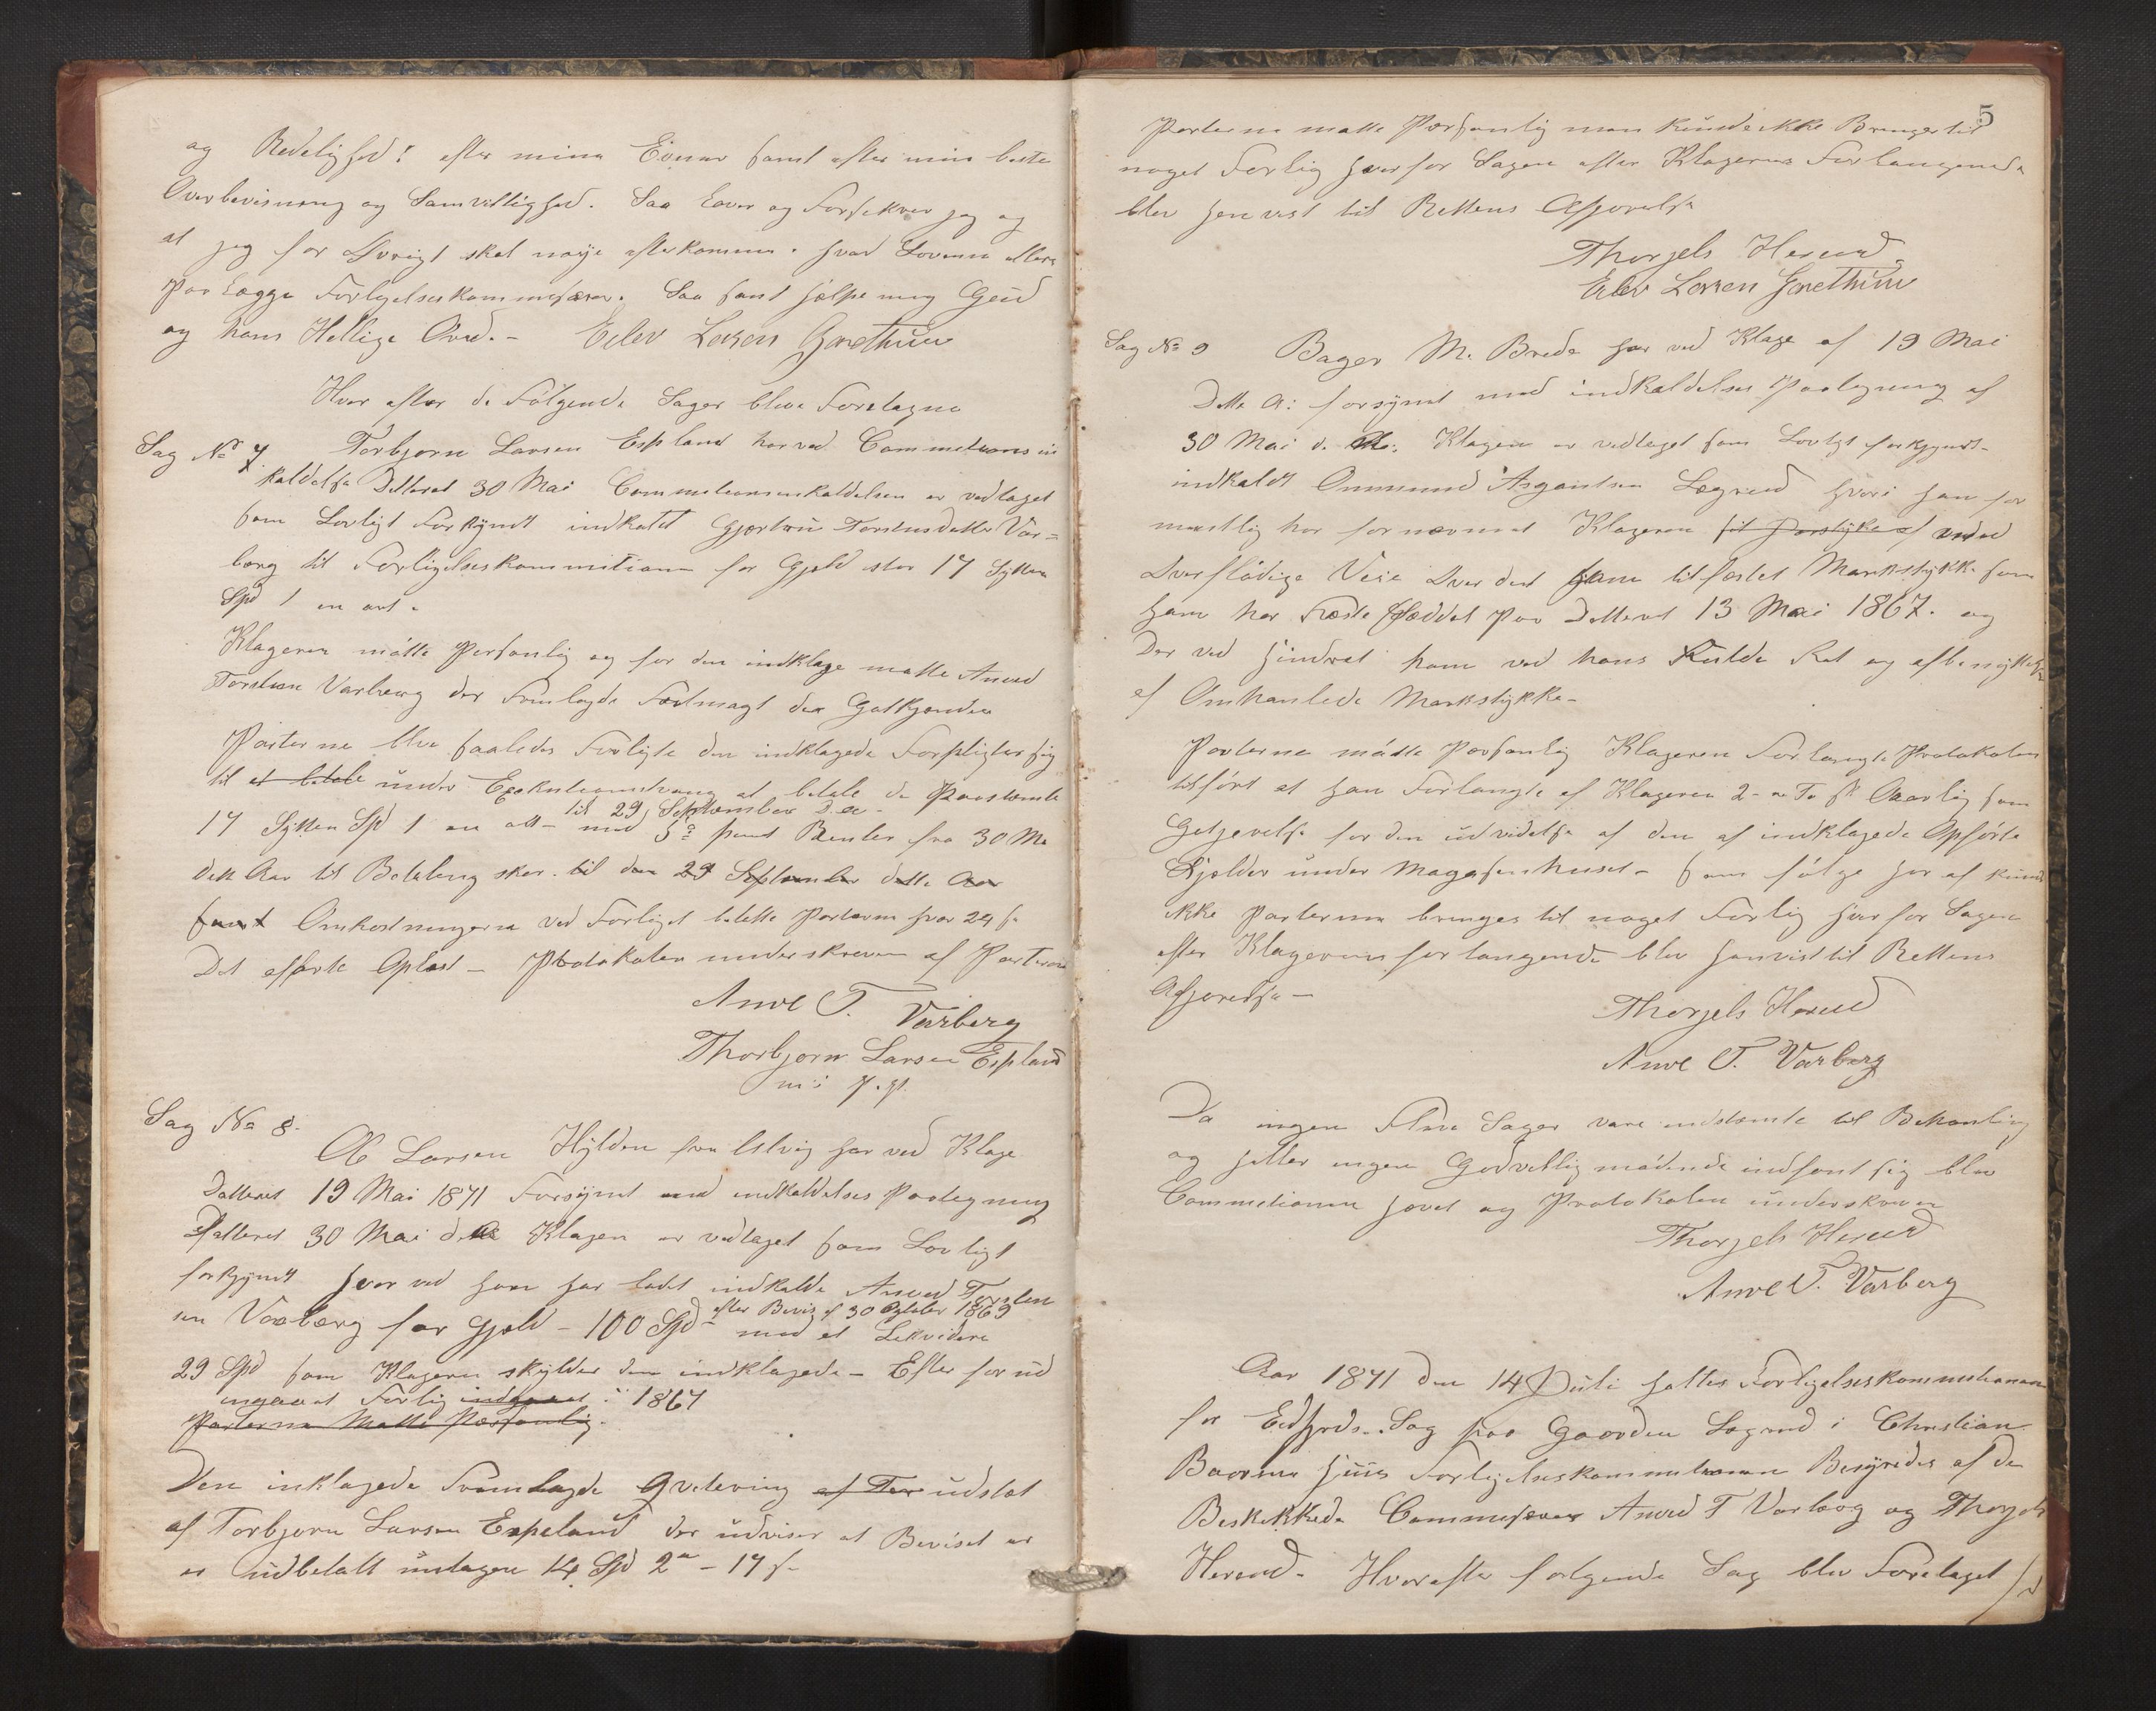 og Redelighed! efter mine Evner samt efter min beste
Overbevisning og Samvittighed. Saa Lover og Forsikrer jeg og
at jeg for Øvrigt skal nøye efterkomme. hvad Lovene allere
Paalægge Forligelseskommisærer. Saa sant hjælpe meg Gud
og hans Hellige Ord. - Eilev Larsen Garethun
Hver efter de Følgende Sager bleve Foretagne
Sag No 7 Torbjørn Larsen Espland har ved Commetions in
kaldelse Datteret 30 Mai Commetionsinkaldelsen er vedtaget
som Lovligt Forkyndt indkaldt Gjertrue Torstensdatter Var=
berg til Forligelseskommitionen for Gjeld stor 17 Sytten
Spd 1 en ort.
Klageren mötte Personlig og for den indklage mötte Amund
Torsten Varberg der Fremlagde Fuldmagt der Gotkjendes
Parterne blev saaledes Forligte den indklagede Forpligter sig
til at betale under Exekutionstvang at betale de Paastevnte
til 29 September D. A.
17 Sytten Spd 1 en ort - med 5 % prsent Renter fra 30 Ma
dette Aar til Betaling sker. til den 29 September dette Aar
samt Omkostningerne ved Forliget betalte Parterne hver 24 s.
Det efførte Oplæst - Protokolen underskreven af Parterne
Amoe T. Varberg
Thorbjørn Larsen Espland
m: p. p.
Sag No 8.
Ol Larsen Hylden fra Ulvig har ved Klage
Datteret 19 Mai 1871 Forsynt med indkaldelses Paategning
Datteret 30 Mai d. Aa Klagen er vedtaget som Lovligt
forkyndt hvor ved han har ladet indkalde Amund Torsten
efter Bevis af 30 October 1869
sen Varberg for Gjeld - 100 Spd - med at Lekvidere
29 Spd som Klageren skylder den indklagede - Efter for ud
ingaaet Forlig indgaaet i 1867
Parterne Matte Personlig.
Den inklagede Fremlagde Qvetering af Tor udstæt
af Torbjørn Larsen Espeland der udviser at Beviset er
er udbetalt untagen 14 Spd 2 ort - 17 s.
5
Parterne møtte Personlig men kunde ikke Bringes til
noget Forlig hvorfor Sagen efter Klagerens Forlangende
blev henvist til Rettens Afgjørelse
Thorgels Hereid
Eilev Larsen Garethun
Sag No 9 Bager M. Brede har ved Klage af 19 Mai
Dette A: forsynt med indkaldelses Paategning af
30 Mai d. Aa: Klagen er vedtaget som Lovligt forkyndt
indkaldt Ommund Asgautsen Lægreid hvori han for
mentlig har fornærmet Klageren sit Jorstyke af ved
Overflødige Veie Over det ham tilfæstet Markstykke som
ham har Fæste Sæddel Paa Datteret 13 Mai 1867. og
Der ved hindret ham ved hans Fulde Ret og afbenyttelse
af Omhanlede Markstykke -
Parterne mötte Personlig Klageren Forlangte Protokolen
tilført at han Forlangte af Klageren 2 - Aarlig som
Gotgjørelse for den udvidelse af den af indklagede Opførte
Kjelder under Magasenhuset - som følge her af kunde
ikke Parterne bringes til noget Forlig hvorfor Sagen
efter Klagerens forlangende blev henvist til Rettens
Afgjørelse -
Thorgels Hereid
Amoe T. Varberg
Da ingen Flere Sager vare indstevnte til Behanling
og heller ingen Godvillig mödende indfant sig blev
Commetionen hævet og Protokolen underskreven
Thorgels Hereid
Amoe T. Varberg
Aar 1871 den 14 Juli holtes Forligelseskommitionen
for Eidfjords Sog paa Gaarden Lægreid i Christian
Baarsens Huus Forligelseskommitionen Besyredes af de
Beskikkede Commisærer Amund T Varberg og Thorgels
Hereid - Hvorefter følgende Sag blev Foretaget